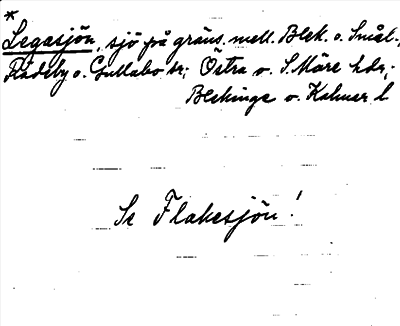 *
Legasjön, sjö på gräns. mell. Blek. o. Smål.,
Flädeby o. Gullabo sr; Östra o. S. Möre hdr;
Blekinge o. Kalmar l
Se Flakesjön!